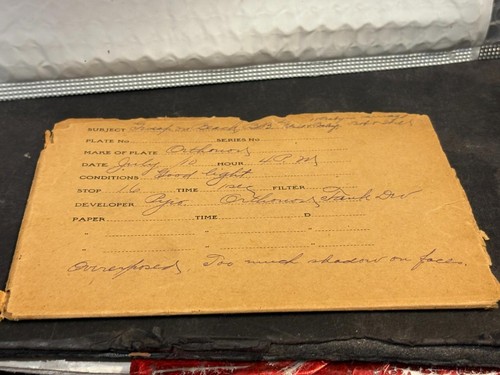 SUBJECT Group on Beach
PLATE No. SERIES No.
MAKE OF PLATE Orthonon
DATE July 10 HOUR 4 P.M
CONDITIONS Good light
STOP 16 TIME 1 sec FILTER
DEVELOPER Pyro Orthonon Tank Dev
PAPER TIME D
" "
" "
Overexposed. Too much shadow on faces.